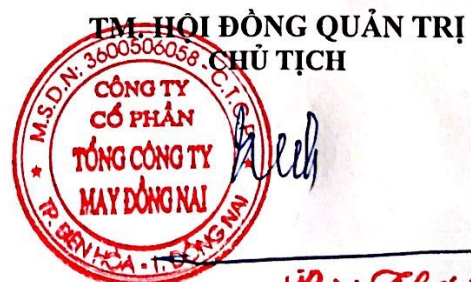 TM. HỘI ĐỒNG QUẢN TRỊ
CHỦ TỊCH
M.S.D.N: 3600506058 - C.T.C.P
CÔNG TY
CỔ PHẦN
TỔNG CÔNG TY
MAY ĐỒNG NAI
TP. BIÊN HÒA - T. ĐỒNG NAI